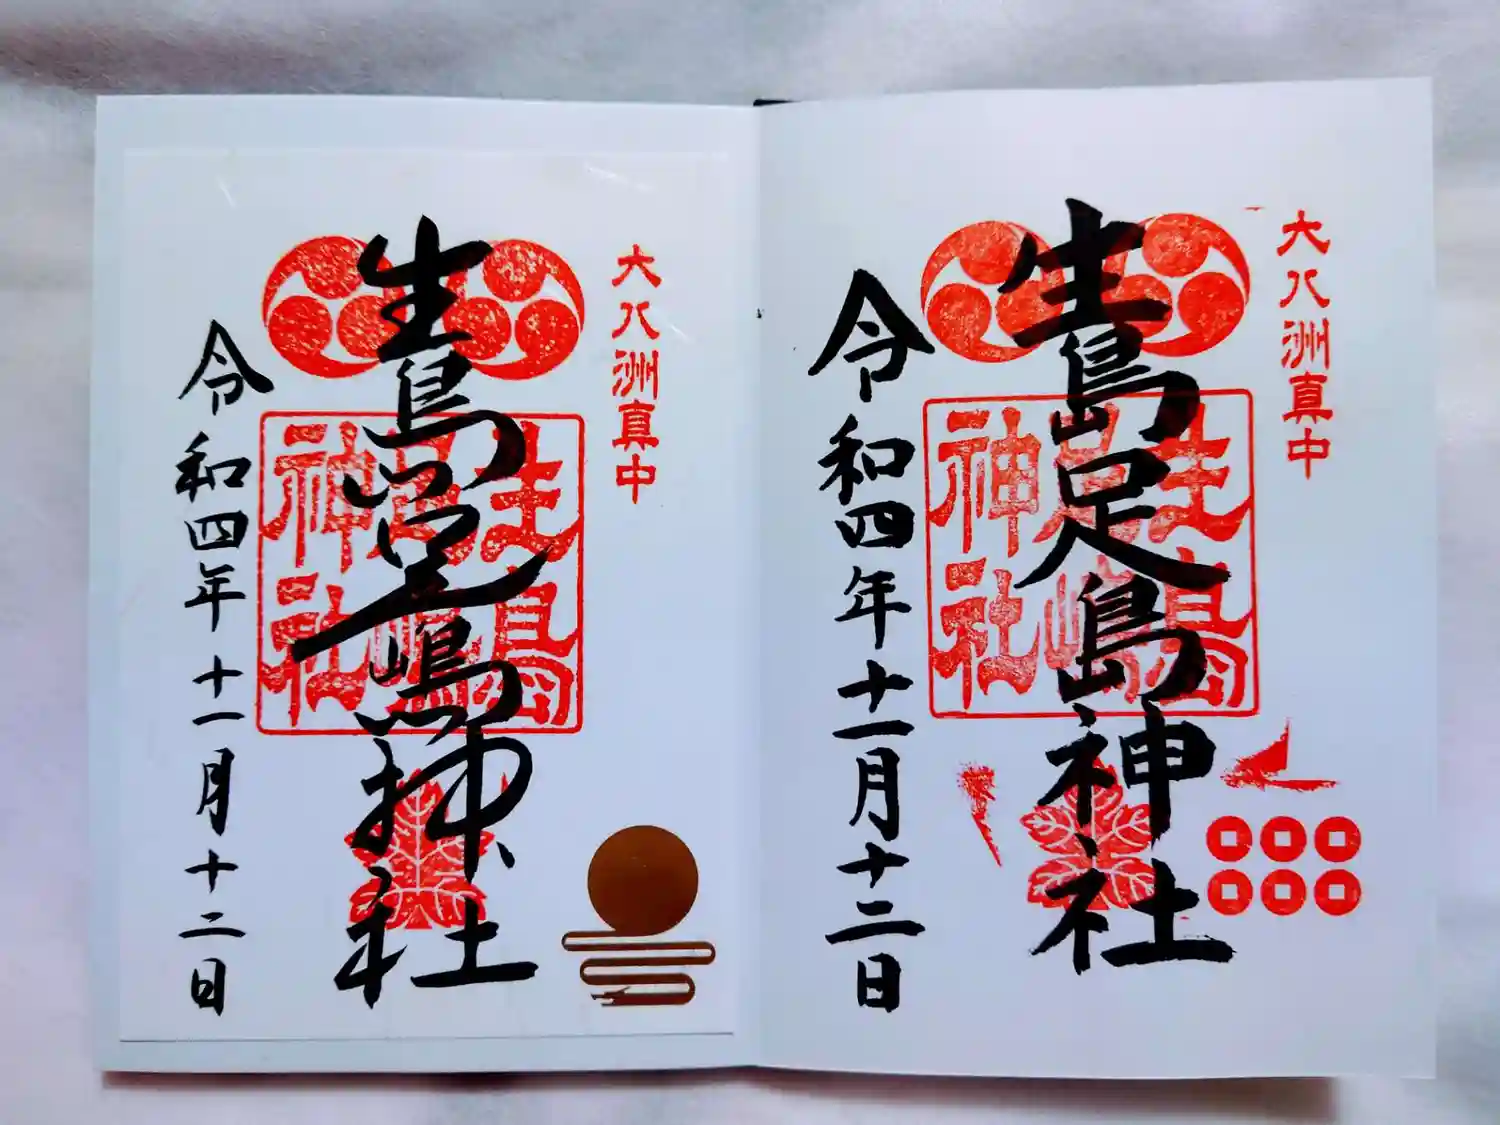 大八洲真中
生島足島神社
生島
足嶋
神社
令和四年十一月十二日
大八洲真中
生島足嶋神社
生島
足嶋
神社
令和四年十一月十二日